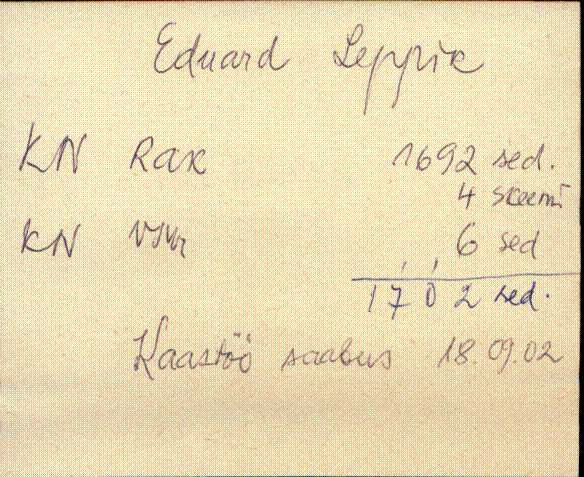 Eduard Leppik
KN Rak 1692 sed.
4 skeemi
KN VMr 6 sed
1702 sed.
Kaastöö saabus 18.09.02